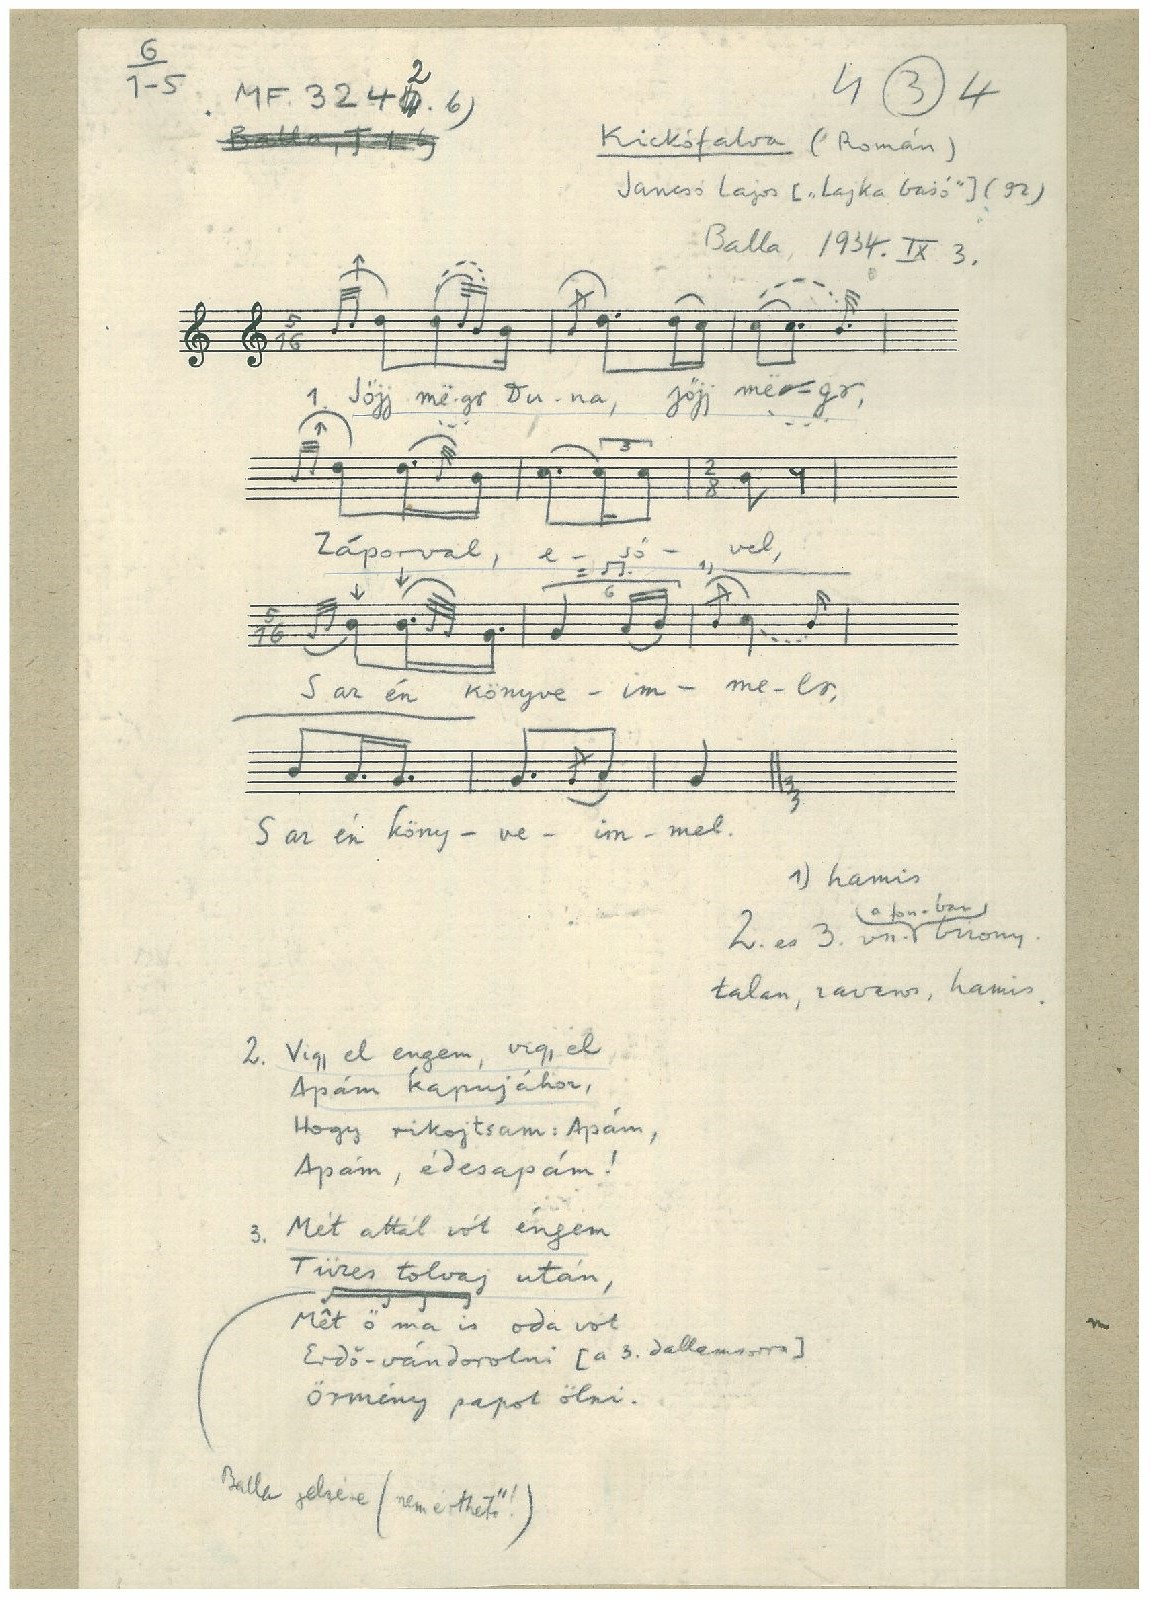 6
1-5
MF. 3242. 6)
4 (3) 4
Kickófalva (Román)
Jancsó Lajos ["Lajka básó"] (92)
Balla, 1934. IX 3.
5
16
1. Jőjj më-gr Du-na, jőjj më=gr,
3
2
8
Záporval, e-só-vel,
6
1)
5
16
S az én könyve-im-me-lr,
S az én köny-ve-im-mel.
1) hamis
(a fon.-ban)
2. es 3. vsz. bizony-
talan, zavaros, hamis.
2. Vigy el engem, vigy el
Apám kapujához,
Hogy rikojtsam: Apám,
Apám, édesapám!
3. Mét attál vót éngem
Tüzes tolvaj után,
Mêt ő ma is oda vót
Erdő-vándorolni [a 3. dallamsorra]
Örmény papot ölni.
Balla jelzése (nem érthető"!)